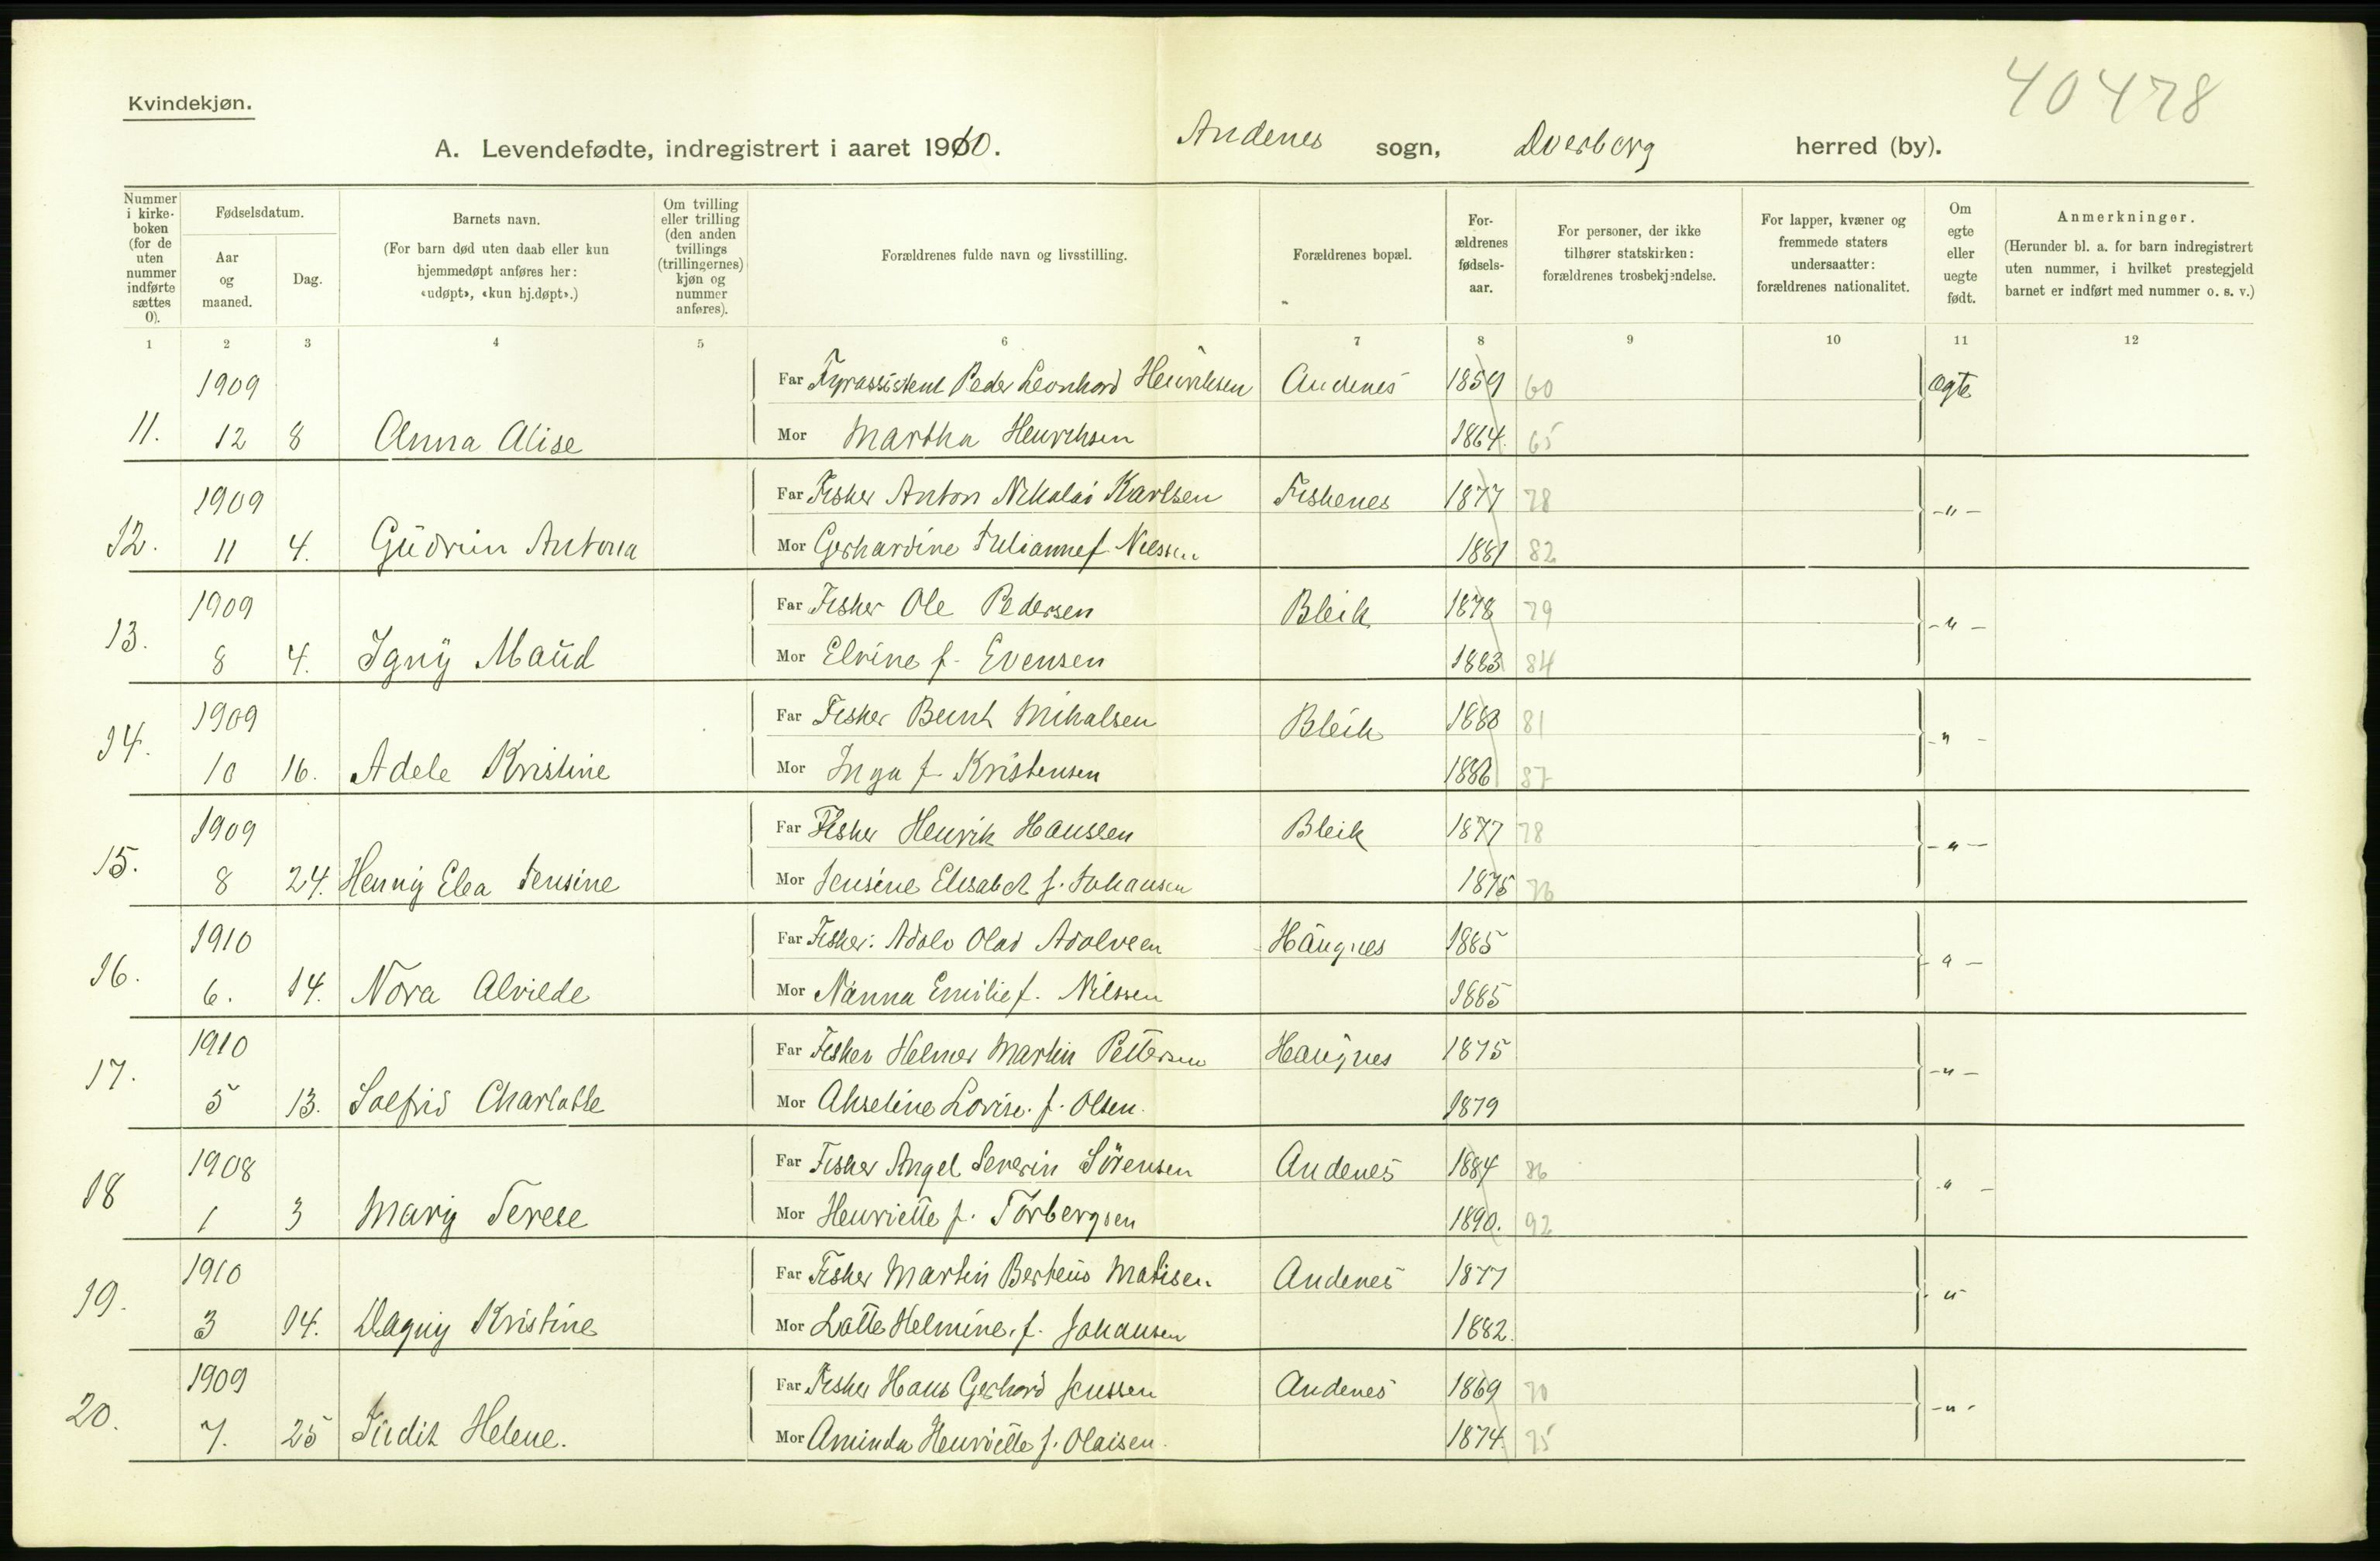 40478
Kvindekjøn.
A. Levendefødte, indregistrert i aaret 1910. Andenes sogn, Dverberg herred (by).
Nummer i kirkeboken (for de uten nummer indførte sættes 0).
Fødselsdatum.
Aar og maaned.
Dag.
Barnets navn.
(For barn død uten daab eller kun hjemmedøpt anføres her: «udøpt», «kun hj.døpt».)
Om tvilling eller trilling (den anden tvillings (trillingernes) kjøn og nummer anføres).
Forældrenes fulde navn og livsstilling.
Forældrenes bopæl.
Forældrenes fødselsaar.
For personer, der ikke tilhører statskirken: forældrenes trosbekjendelse.
For lapper, kvæner og fremmede staters undersaatter: forældrenes nationalitet.
Om egte eller uegte født.
Anmerkninger.
(Herunder bl. a. for barn indregistrert uten nummer, i hvilket prestegjeld barnet er indført med nummer o. s. v.)
1 2 3 4 5 6 7 8 9 10 11 12
1909 Far Fyrassistent Peder Leonhard Henriksen Andenes 1859 60 ægte
11. 12 8 Anna Alise Mor Martha Henriksen 1864. 65
1909 Far Fisker Anton Nikolai Karlsen Fiskenes 1877 78 -"-
12. 11 4. Gudrun Antona Mor Gerhardine Julianne f. Nilssen 1881 82
1909 Far Fisker Ole Pedersen Bleik 1878 79 -"-
13. 8 4. Igny Maud Mor Elvine f. Evensen 1883 84
1909 Far Fisker Bernt Mikalsen Bleik 1880 81 -"-
14. 10 16. Adele Kristine Mor Inga f. Kristensen 1886 87
1909 Far Fisker Henrik Hanssen Bleik 1877 78 -"-
15. 8 24. Henny Elea Jensine Mor Jensine Elisabet f. Johansen 1875 76
1910 Far Fisker: Adolv Olai Adolvsen Haugnes 1885 -"-
16. 6. 14. Nora Alvilde Mor Nanna Emilie f. Nilssen 1885
1910 Far Fisker Helmer Martin Pettersen Haugnes 1875 -"-
17. 5 13. Solfrid Charlotte Mor Akseline Lovise. f. Olsen. 1879
1908 Far Fisker Angel Severin Sörensen Andenes 1884 86 -"-
18 1 3 Mary Terese Mor Henriette f. Torbergsen 1890. 92
1910 Far Fisker Martin Berteus Matisen Andenes 1877 -"-
19. 3 14. Dagny Kristine Mor Lotte Helmine. f. Johansen 1882.
1909 Far Fisker Hans Gerhard Jenssen Andenes 1869 70 -"-
20. 7. 25 Judit Helene. Mor Aminda Henriette f. Olaisen. 1874. 75